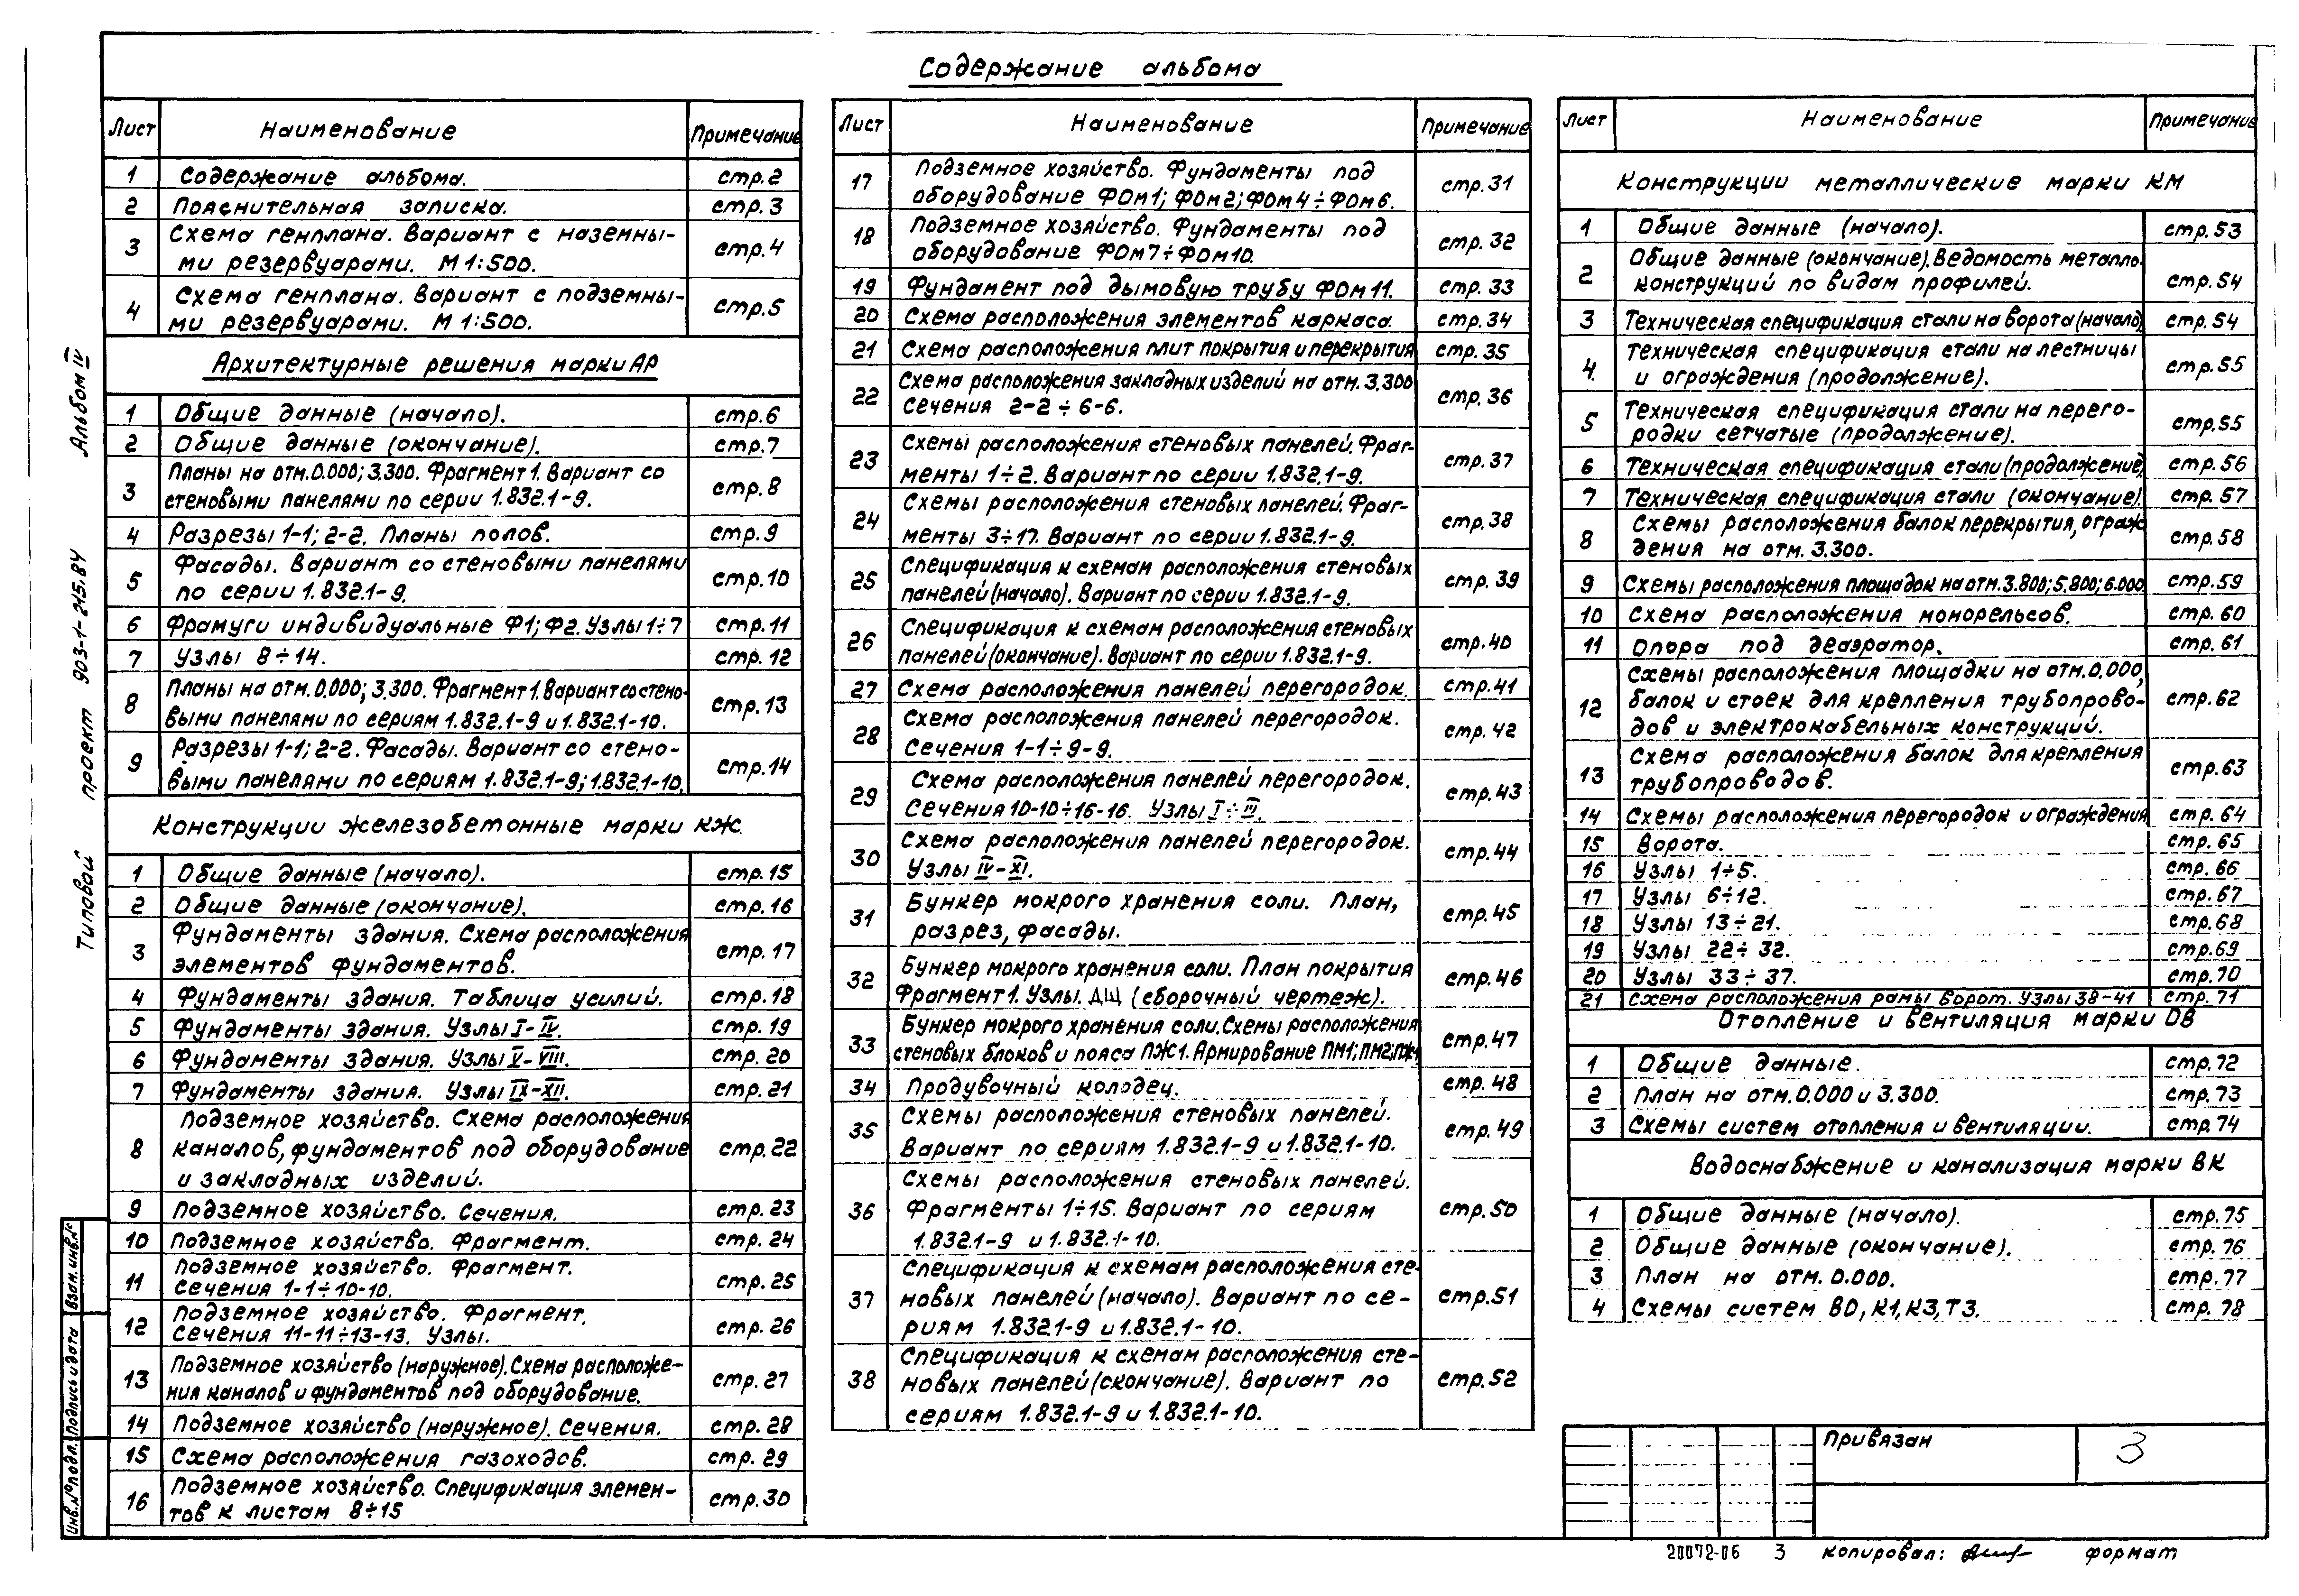 Содержание альбома
Лист Наименование Примечание
1 Содержание альбома. стр.2
2 Пояснительная записка. стр.3
3 Схема генплана. Вариант с наземны-
ми резервуарами. М 1:500. стр.4
4 Схема генплана. Вариант с подземны-
ми резервуарами. М 1:500. стр.5
Архитектурные решения марки АР
1 Общие данные (начало). стр.6
2 Общие данные (окончание). стр.7
3 Планы на отм.0.000; 3.300. Фрагмент 1. Вариант со
стеновыми панелями по серии 1.832.1-9. стр.8
4 Разрезы 1-1; 2-2. Планы полов. стр.9
5 Фасады. Вариант со стеновыми панелями
по серии 1.832.1-9. стр.10
6 Фрамуги индивидуальные Ф1; Ф2. Узлы 1÷7 стр.11
7 Узлы 8÷14. стр.12
8 Планы на отм.0.000; 3.300. Фрагмент 1. Вариант со стено-
выми панелями по сериям 1.832.1-9 и 1.832.1-10. стр.13
9 Разрезы 1-1; 2-2. Фасады. Вариант со стено-
выми панелями по сериям 1.832.1-9; 1.832.1-10. стр.14
Конструкции железобетонные марки КЖ.
1 Общие данные (начало). стр.15
2 Общие данные (окончание). стр.16
3 Фундаменты здания. Схема расположения
элементов фундаментов. стр.17
4 Фундаменты здания. Таблица усилий. стр.18
5 Фундаменты здания. Узлы I-IV. стр.19
6 Фундаменты здания. Узлы V-VIII. стр.20
7 Фундаменты здания. Узлы IX-XII. стр.21
8 Подземное хозяйство. Схема расположения
каналов, фундаментов под оборудование
и закладных изделий. стр.22
9 Подземное хозяйство. Сечения. стр.23
10 Подземное хозяйство. Фрагмент. стр.24
11 Подземное хозяйство. Фрагмент.
Сечения 1-1÷10-10. стр.25
12 Подземное хозяйство. Фрагмент.
Сечения 11-11÷13-13. Узлы. стр.26
13 Подземное хозяйство (наружное). Схема расположе-
ния каналов и фундаментов под оборудование. стр.27
14 Подземное хозяйство (наружное). Сечения. стр.28
15 Схема расположения газоходов. стр.29
16 Подземное хозяйство. Спецификация элемен-
тов к листам 8÷15 стр.30
Лист Наименование Примечание
17 Подземное хозяйство. Фундаменты под
оборудование ФОм1; ФОм2; ФОм4÷ФОм6. стр.31
18 Подземное хозяйство. Фундаменты под
оборудование ФОм7÷ФОм10. стр.32
19 Фундамент под дымовую трубу ФОм11. стр.33
20 Схема расположения элементов каркаса. стр.34
21 Схема расположения плит покрытия и перекрытия стр.35
22 Схема расположения закладных изделий на отм. 3.300
Сечения 2-2÷6-6. стр.36
23 Схемы расположения стеновых панелей. Фраг-
менты 1÷2. Вариант по серии 1.832.1-9. стр.37
24 Схемы расположения стеновых панелей. Фраг-
менты 3÷17. Вариант по серии 1.832.1-9. стр.38
25 Спецификация к схемам расположения стеновых
панелей (начало). Вариант по серии 1.832.1-9. стр.39
26 Спецификация к схемам расположения стеновых
панелей (окончание). Вариант по серии 1.832.1-9. стр.40
27 Схема расположения панелей перегородок. стр.41
28 Схема расположения панелей перегородок.
Сечения 1-1÷9-9. стр.42
29 Схема расположения панелей перегородок.
Сечения 10-10÷16-16. Узлы I÷III. стр.43
30 Схема расположения панелей перегородок.
Узлы IV-XI. стр.44
31 Бункер мокрого хранения соли. План,
разрез, фасады. стр.45
32 Бункер мокрого хранения соли. План покрытия
Фрагмент 1. Узлы. ДЩ (сборочный чертеж). стр.46
33 Бункер мокрого хранения соли. Схемы расположения
стеновых блоков и пояса ПЖ1. Армирование ПМ1; ПМ2; ПЖ1 стр.47
34 Продувочный колодец. стр.48
35 Схемы расположения стеновых панелей.
Вариант по сериям 1.832.1-9 и 1.832.1-10. стр.49
36 Схемы расположения стеновых панелей.
Фрагменты 1÷15. Вариант по сериям
1.832.1-9 и 1.832.1-10. стр.50
37 Спецификация к схемам расположения сте-
новых панелей (начало). Вариант по се-
риям 1.832.1-9 и 1.832.1-10. стр.51
38 Спецификация к схемам расположения сте-
новых панелей (окончание). Вариант по
сериям 1.832.1-9 и 1.832.1-10. стр.52
Лист Наименование Примечание
Конструкции металлические марки КМ
1 Общие данные (начало). стр.53
2 Общие данные (окончание). Ведомость металло-
конструкций по видам профилей. стр.54
3 Техническая спецификация стали на ворота (начало) стр.54
4 Техническая спецификация стали на лестницы
и ограждения (продолжение). стр.55
5 Техническая спецификация стали на перего-
родки сетчатые (продолжение). стр.55
6 Техническая спецификация стали (продолжение) стр.56
7 Техническая спецификация стали (окончание). стр.57
8 Схемы расположения балок перекрытия, ограж-
дения на отм. 3.300. стр.58
9 Схемы расположения площадок на отм.3.800; 5.800; 6.000. стр.59
10 Схема расположения монорельсов. стр.60
11 Опора под деаэратор. стр.61
12 Схемы расположения площадки на отм.0.000,
балок и стоек для крепления трубопрово-
дов и электрокабельных конструкций. стр.62
13 Схема расположения балок для крепления
трубопроводов. стр.63
14 Схемы расположения перегородок и ограждения стр.64
15 Ворота. стр.65
16 Узлы 1÷5. стр.66
17 Узлы 6÷12. стр.67
18 Узлы 13÷21. стр.68
19 Узлы 22÷32. стр.69
20 Узлы 33÷37. стр.70
21 Схема расположения рамы ворот. Узлы 38-41 стр.71
Отопление и вентиляция марки ОВ
1 Общие данные. стр.72
2 План на отм.0.000 и 3.300. стр.73
3 Схемы систем отопления и вентиляции. стр.74
Водоснабжение и канализация марки ВК
1 Общие данные (начало). стр.75
2 Общие данные (окончание). стр.76
3 План на отм. 0.000. стр.77
4 Схемы систем В0, К1, К3, Т3. стр.78
Привязан 3
20072-06 3 Копировал: формат
Типовой проект 903-1-215.84 Альбом IV
Инв.№подл. Подпись и дата Взам.инв.№